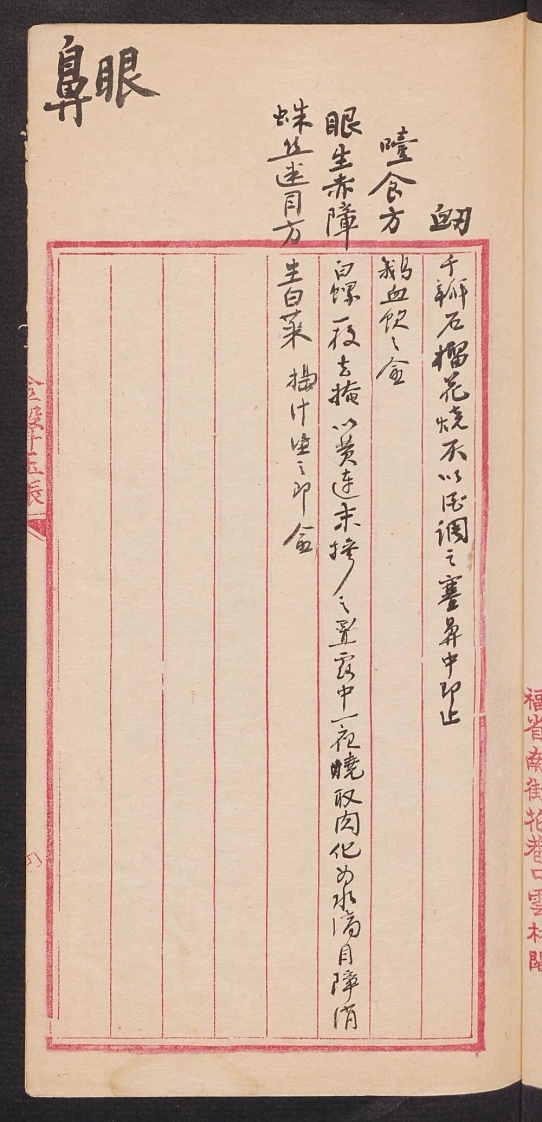 眼
鼻
衂 千瓣石榴花燒灰以酒調之塞鼻中即止
噎食方 鵝血飲之愈
眼生赤障 白螺一枚去掩以黃連末摻之置露中一夜曉取肉化為水滴目障消
蛛丝迷目方 生白菜搗汁塗之即愈
福省南街花巷口雲林閣